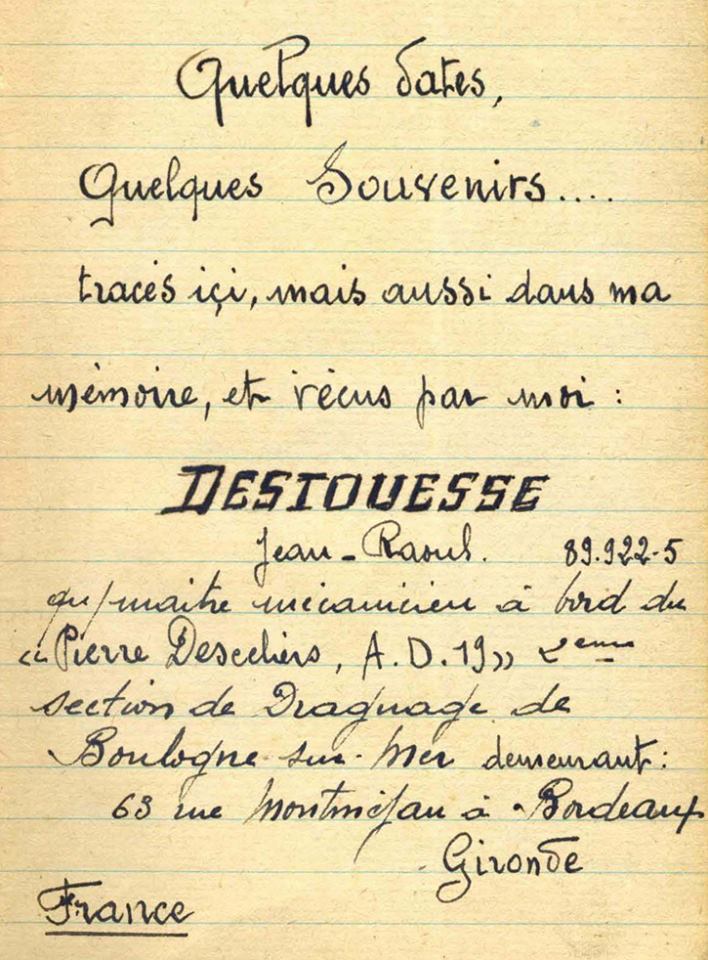 Quelques dates,
Quelques Souvenirs....
tracés içi, mais aussi dans ma
mémoire, et vécus par moi :
DESTOUESSE
Jean-Raoul. 89.922-5
qu/maitre mécanicien à bord du
"Pierre Desceliers, A.D.19" 2eme
section de Draguage de
Boulogne-sur-Mer demeurant:
63 rue Montméjau à Bordeaux
Gironde
France